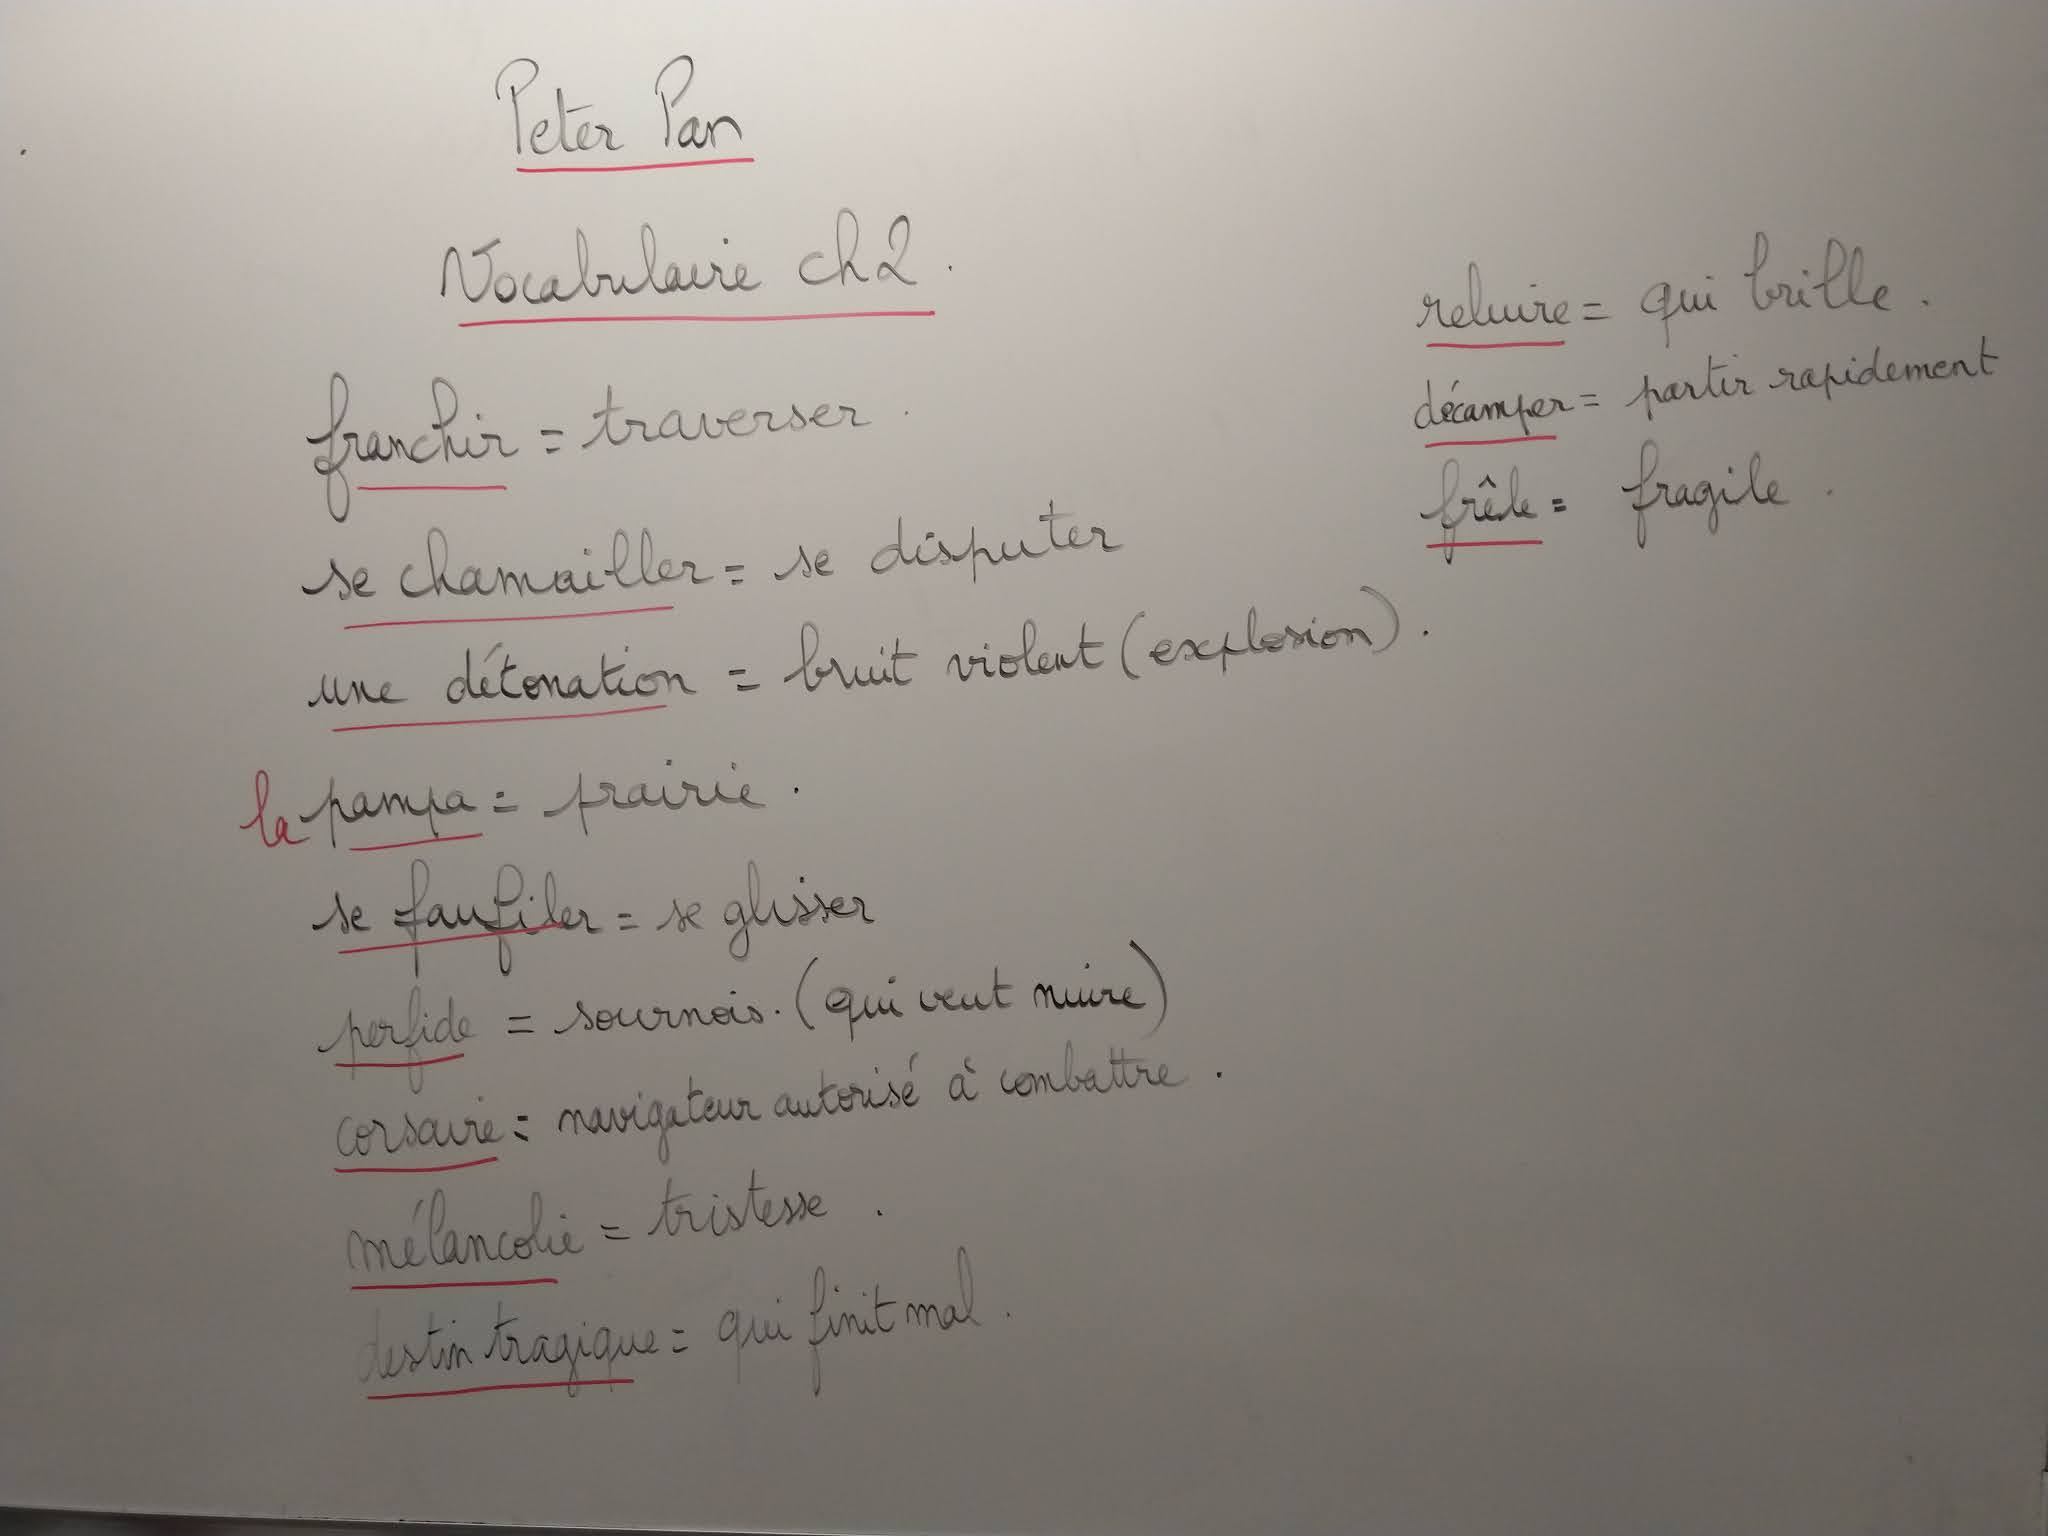 Peter Pan
Vocabulaire ch2.
franchir = traverser.
se chamailler = se disputer
une détonation = bruit violent (explosion).
la pampa = prairie.
se faufiler = se glisser
perfide = sournois. (qui veut nuire)
corsaire = navigateur autorisé à combattre.
mélancolie = tristesse.
destin tragique = qui finit mal.
reluire = qui brille.
décamper = partir rapidement
frêle = fragile.